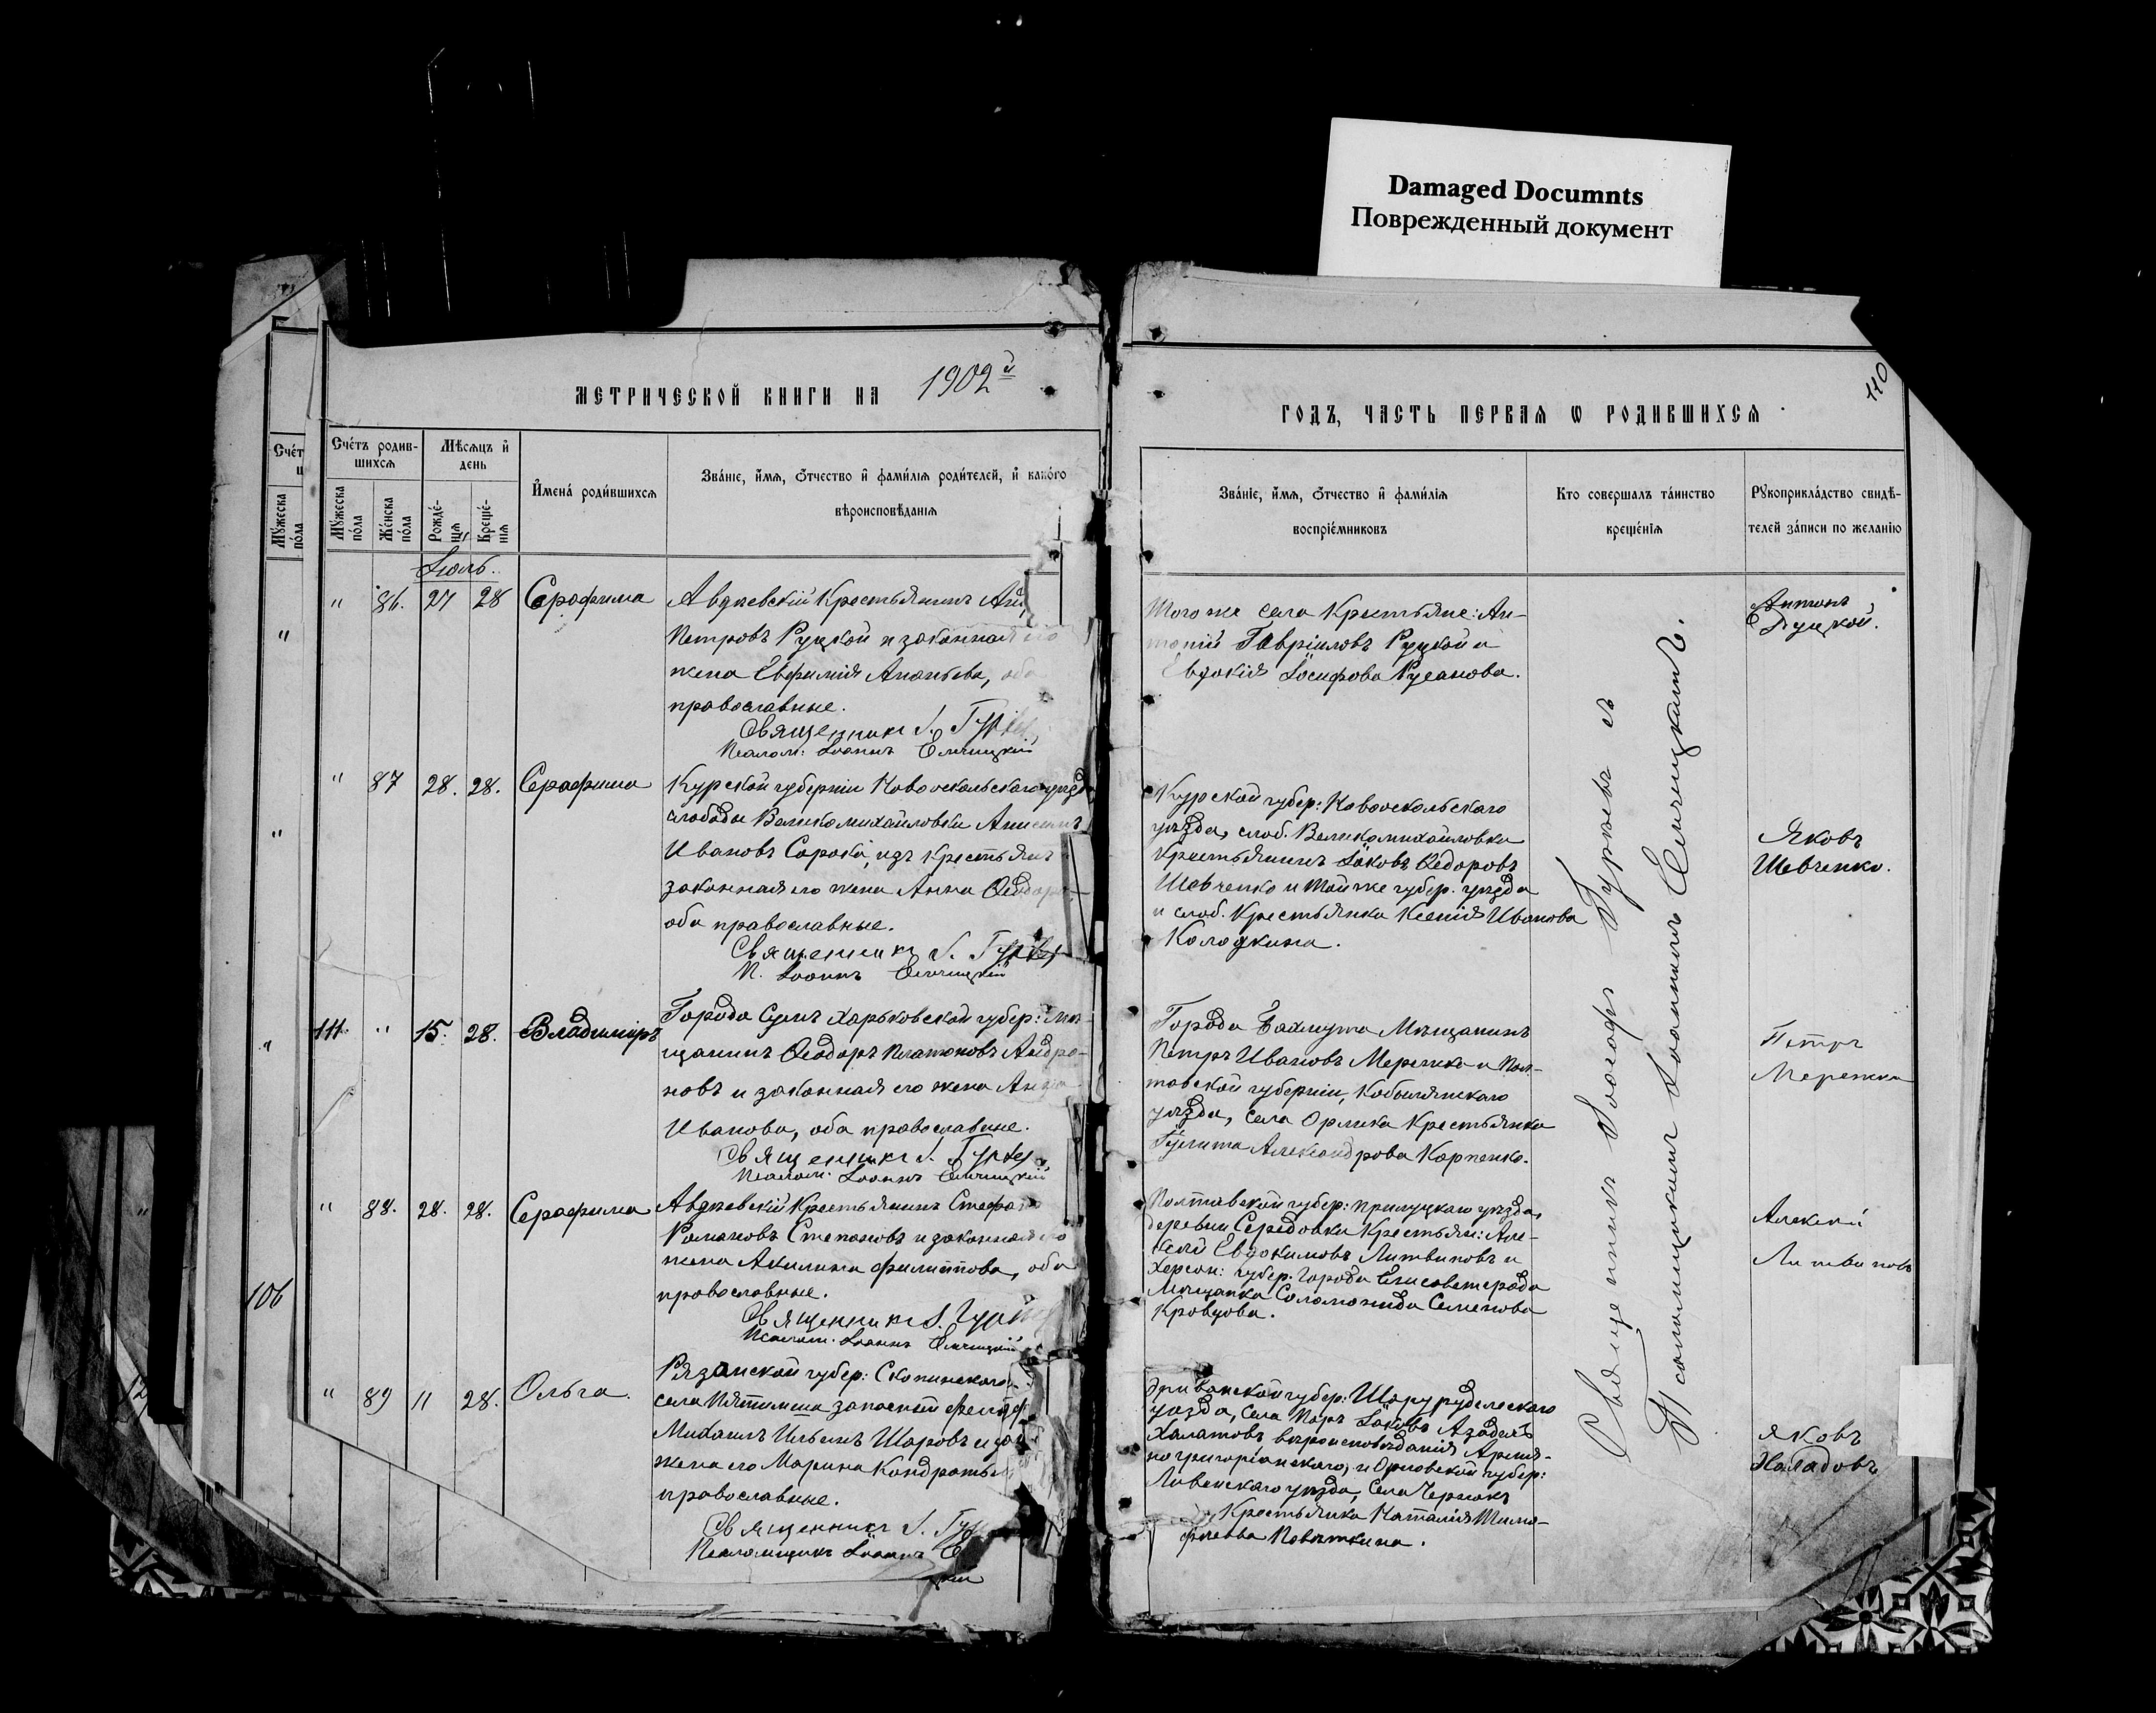 Damaged Documnts
Поврежденный документ
МЕТРИЧЕСКОЙ КНИГИ НА 1902й
ГОДЪ, ЧАСТЬ ПЕРВАЯ Ѡ РОДИВШИХСЯ
110
Счéтъ родив-
шихсѧ
Мѣсѧцъ и҆
день
Мꙋ́жеска
по́ла
Же́нска
по́ла
Рожде́-
нїѧ
Креще́-
нїѧ
И҆мена́ роди́вшихсѧ
Зва́нїе, и҆́мѧ, ѻ҆́тчество и҆ фами́лїѧ роди́телей, и҆ како́го
вѣроисповѣ́данїѧ
Зва́нїе, и҆́мѧ, ѻ҆́тчество и҆ фами́лїѧ
воспрїе́мниковъ
Кто соверша́лъ та́инство
креще́нїѧ
Рꙋкоприкла́дство свидѣ́-
телей за́писи по жела́нїю
Іюль.
" 86. 27 28 Серафима
Авдѣевскій Крестьянинъ
Петровъ Руцкой и законная его
жена Евфимія Ананьева, оба
православные.
Священникъ І. Гурьев
Псалом: Іоаннъ
Того же села Крестьяне: Ан-
тоній Гавріиловъ Руцкой и
Евдокія Іосифова Русанова.
Антонъ
Руцкой.
" 87 28. 28. Серафима
Курской губерніи Новооскольскаго уѣзда
слободы Великомихайловки Анисимъ
Ивановъ Сорока, изъ крестьянъ
законная его жена Анна Ѳеодоро
оба православные.
Священникъ І. Гурьев
П. Іоаннъ
Курской губер: Новооскольскаго
уѣзда, слоб. Великомихайловки
Крестьянинъ Іаковъ Ѳедоровъ
Шевченко и той же губер. уѣзда
и слоб. Крестьянка Ксенія Иванова
Колодкина.
Яковъ
Шевченко.
111. " 15. 28. Владиміръ
Города Сумъ Харьковской губер: мѣ-
щанинъ Ѳеодоръ Платоновъ Андро-
новъ и законная его жена Анна
Иванова, оба православные.
Священникъ І. Гурьев
Псалом: Іоаннъ
Города Бахмута Мѣщанинъ
Петръ Ивановъ Мережко и Пол-
тавской губерніи, Кобылянскаго
уѣзда, села Орлика Крестьянка
Александрова Карпенко.
Петръ
Мережка
" 88. 28. 28. Серафима
Авдѣевскій Крестьянинъ Стефанъ
Романовъ Степановъ и законная его
жена Акилина Филиппова, оба
православные.
Священникъ І. Гурьев
Псалом. Іоаннъ
Полтавской губер: Прилуцкаго уѣзда,
деревни Середовки Крестьян: Але-
ксѣй Евдокимовъ Литвиновъ и
Херсон: губер. города Елисаветграда
Мѣщанка Соломонида Семенова
Кравцова.
Алексѣй
Литвиновъ
" 89 11 28. Ольга.
Рязанской губер: Скопинскаго
села запасный
Михаилъ Ильинъ Шаровъ и зак
жена его Марина Кондратьев
православные.
Священникъ І. Гур
Псаломщикъ Іоаннъ
цкій
Эриванской губер: Шаруро
уѣзда, села Іаковъ
Халатовъ вѣроисповѣданія Армя-
но григоріанскаго, и Орловской губер:
Ливенскаго уѣзда, села
Крестьянка Наталія Тимо-
феева
Яковъ
Халадовъ
Священникъ Іосифъ Гурьевъ съ
Псаломщикомъ Іоанномъ
106